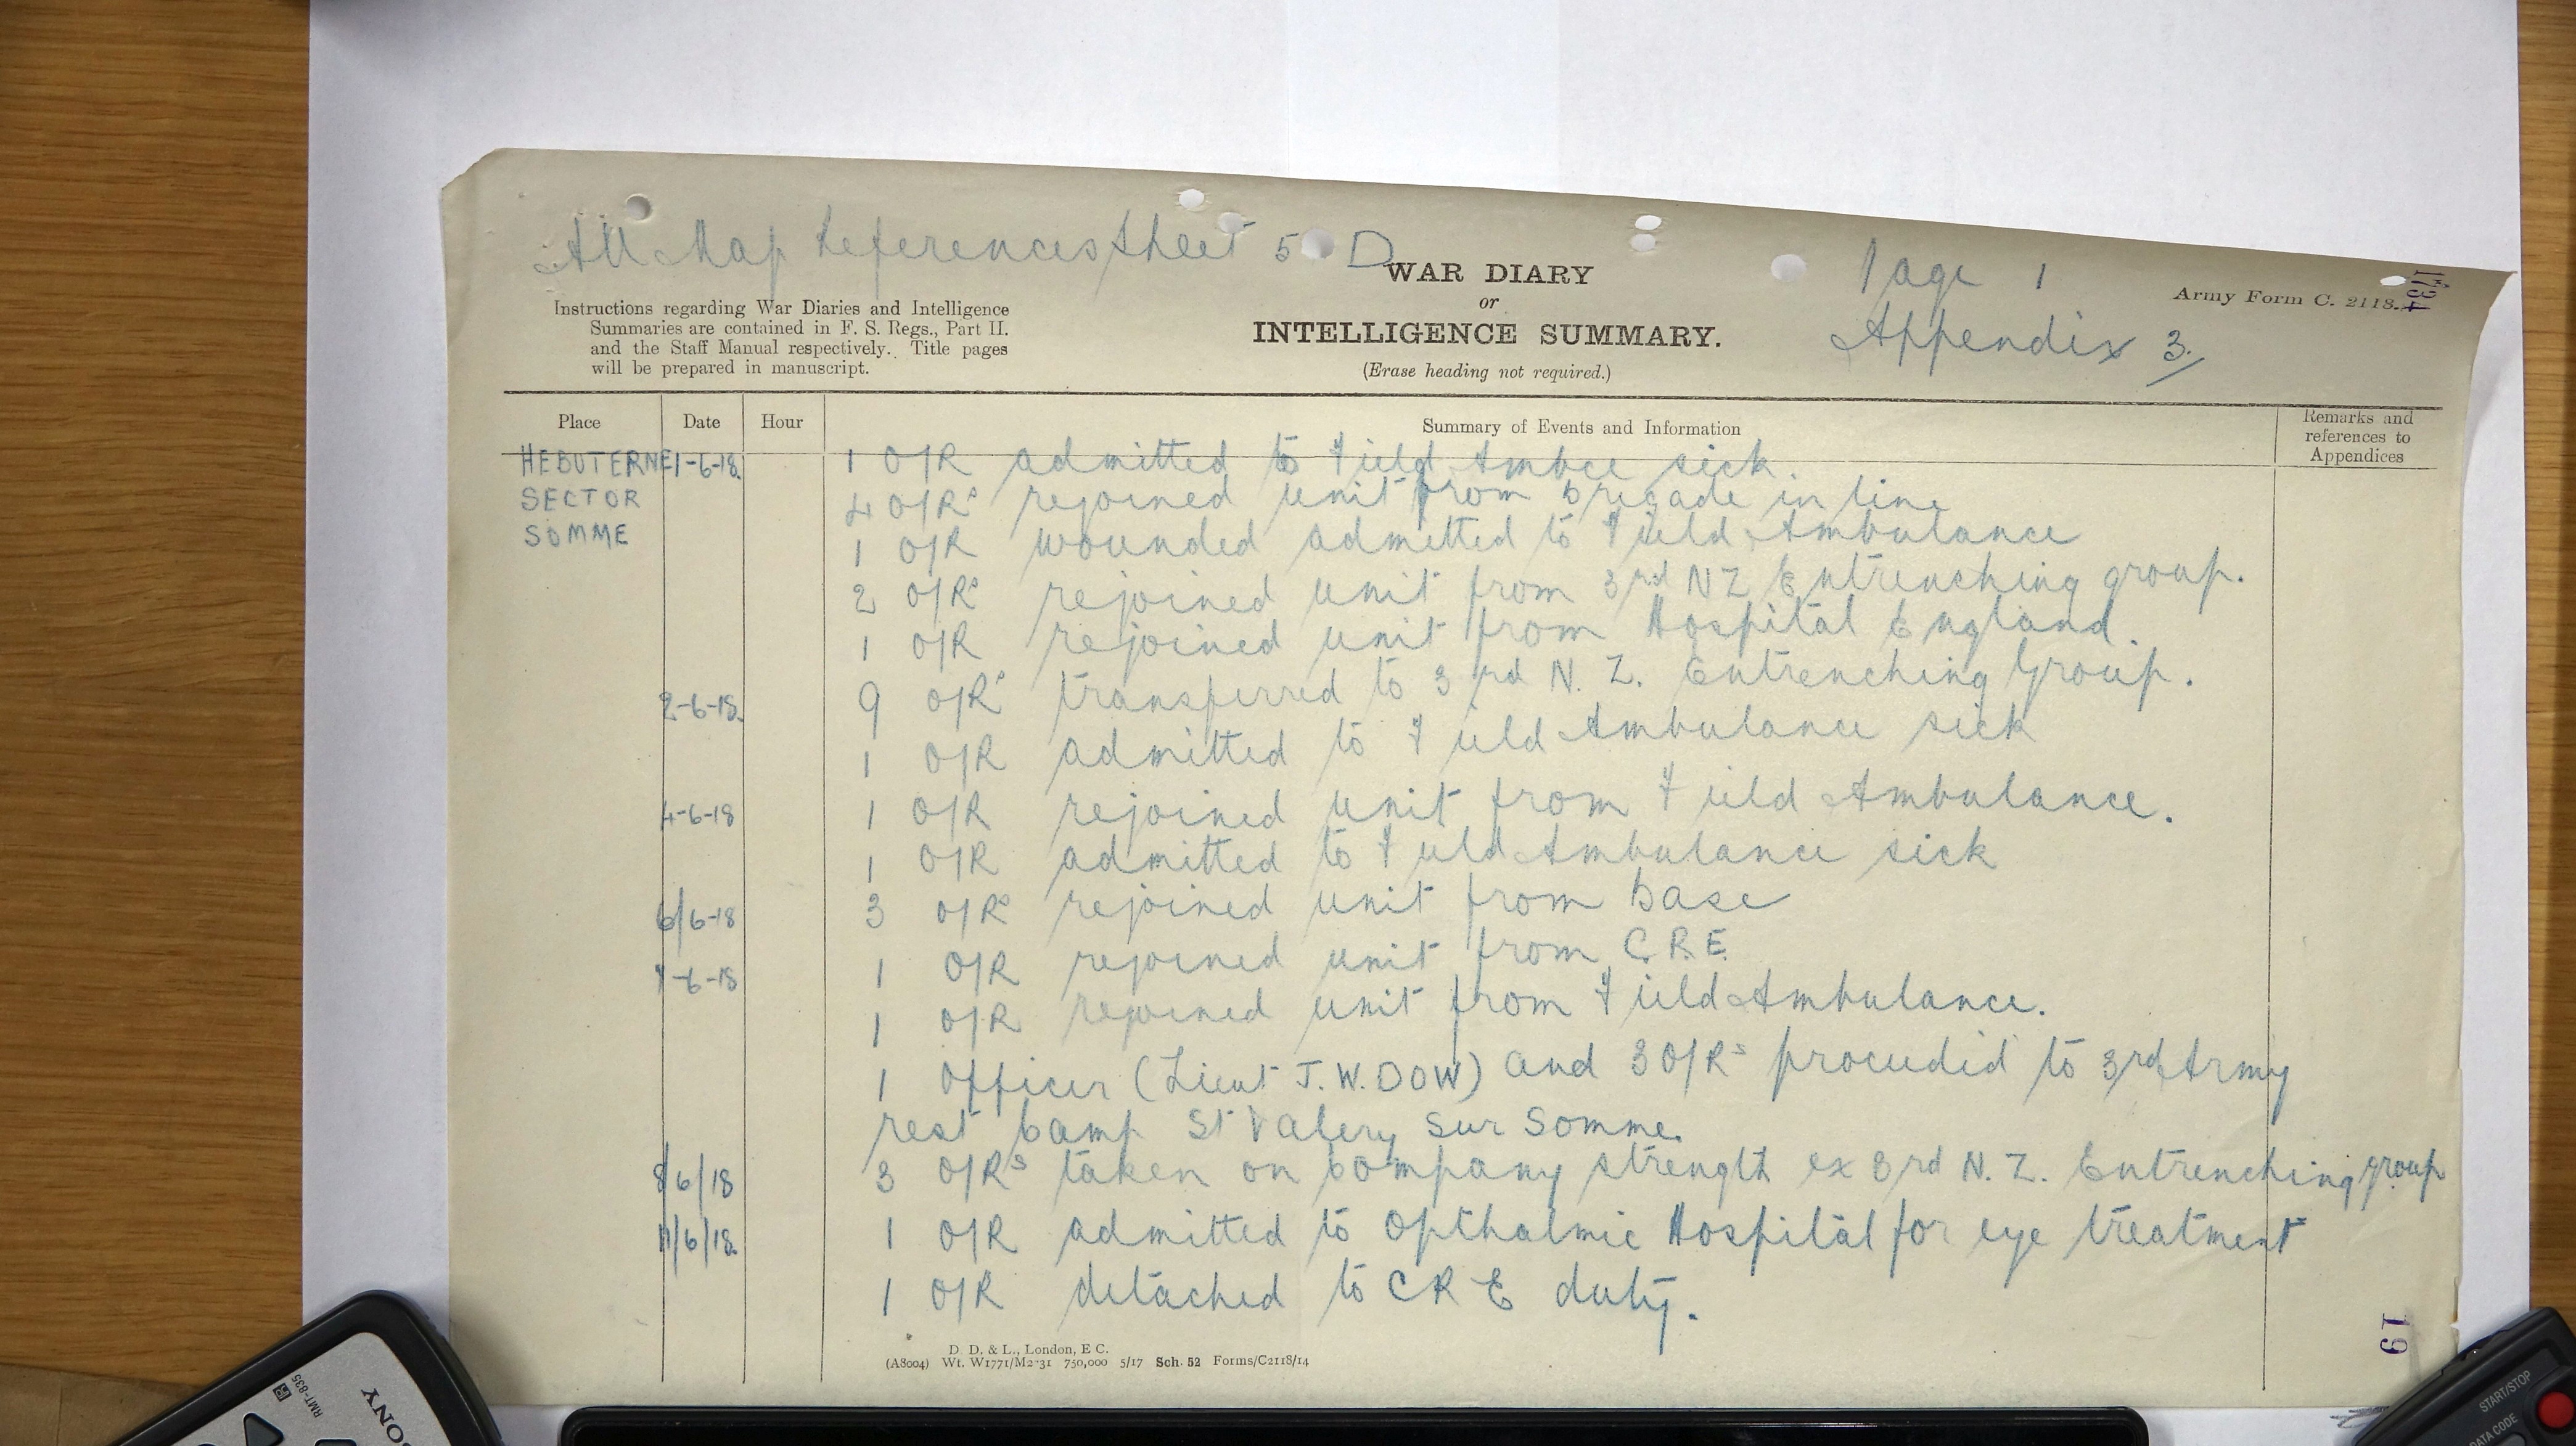 All Map References Sheet 5 D
WAR DIARY
or
INTELLIGENCE SUMMARY.
(Erase heading not required.)
Page 1
Appendix 3.
Army Form C. 2118.
Instructions regarding War Diaries and Intelligence
Summaries are contained in F. S. Regs., Part II.
and the Staff Manual respectively. Title pages
will be prepared in manuscript.
Place Date Hour Summary of Events and Information Remarks and references to Appendices
HEBUTERNE 1-6-18. 1 O/R admitted to Field Ambce sick.
SECTOR 4 O/Rs rejoined unit from Brigade in line
SOMME 1 O/R wounded admitted to Field Ambulance
2 O/Rs rejoined unit from 3rd NZ Entrenching group.
1 O/R rejoined unit from Hospital England.
2-6-18. 9 O/Rs transferred to 3rd N. Z. Entrenching Group.
1 O/R admitted to Field Ambulance sick
4-6-18 1 O/R rejoined unit from Field Ambulance.
1 O/R admitted to Field Ambulance sick
6/6-18 3 O/Rs rejoined unit from Base
7-6-18 1 O/R rejoined unit from C.R.E.
1 O/R rejoined unit from Field Ambulance.
1 Officer (Lieut J. W. DOW) and 3 O/Rs proceeded to 3rd Army
rest Camp St Valery sur Somme.
8/6/18 3 O/Rs taken on Company strength ex 3rd N. Z. Entrenching group
11/6/18. 1 O/R admitted to Opthalmic Hospital for eye treatment
1 O/R detached to C R E duty.
D. D. & L., London, E C.
(A8004) Wt. W1771/M2-31 750,000 5/17 Sch. 52 Forms/C2118/14
19
SONY
RMT-835
START/STOP
DATA CODE